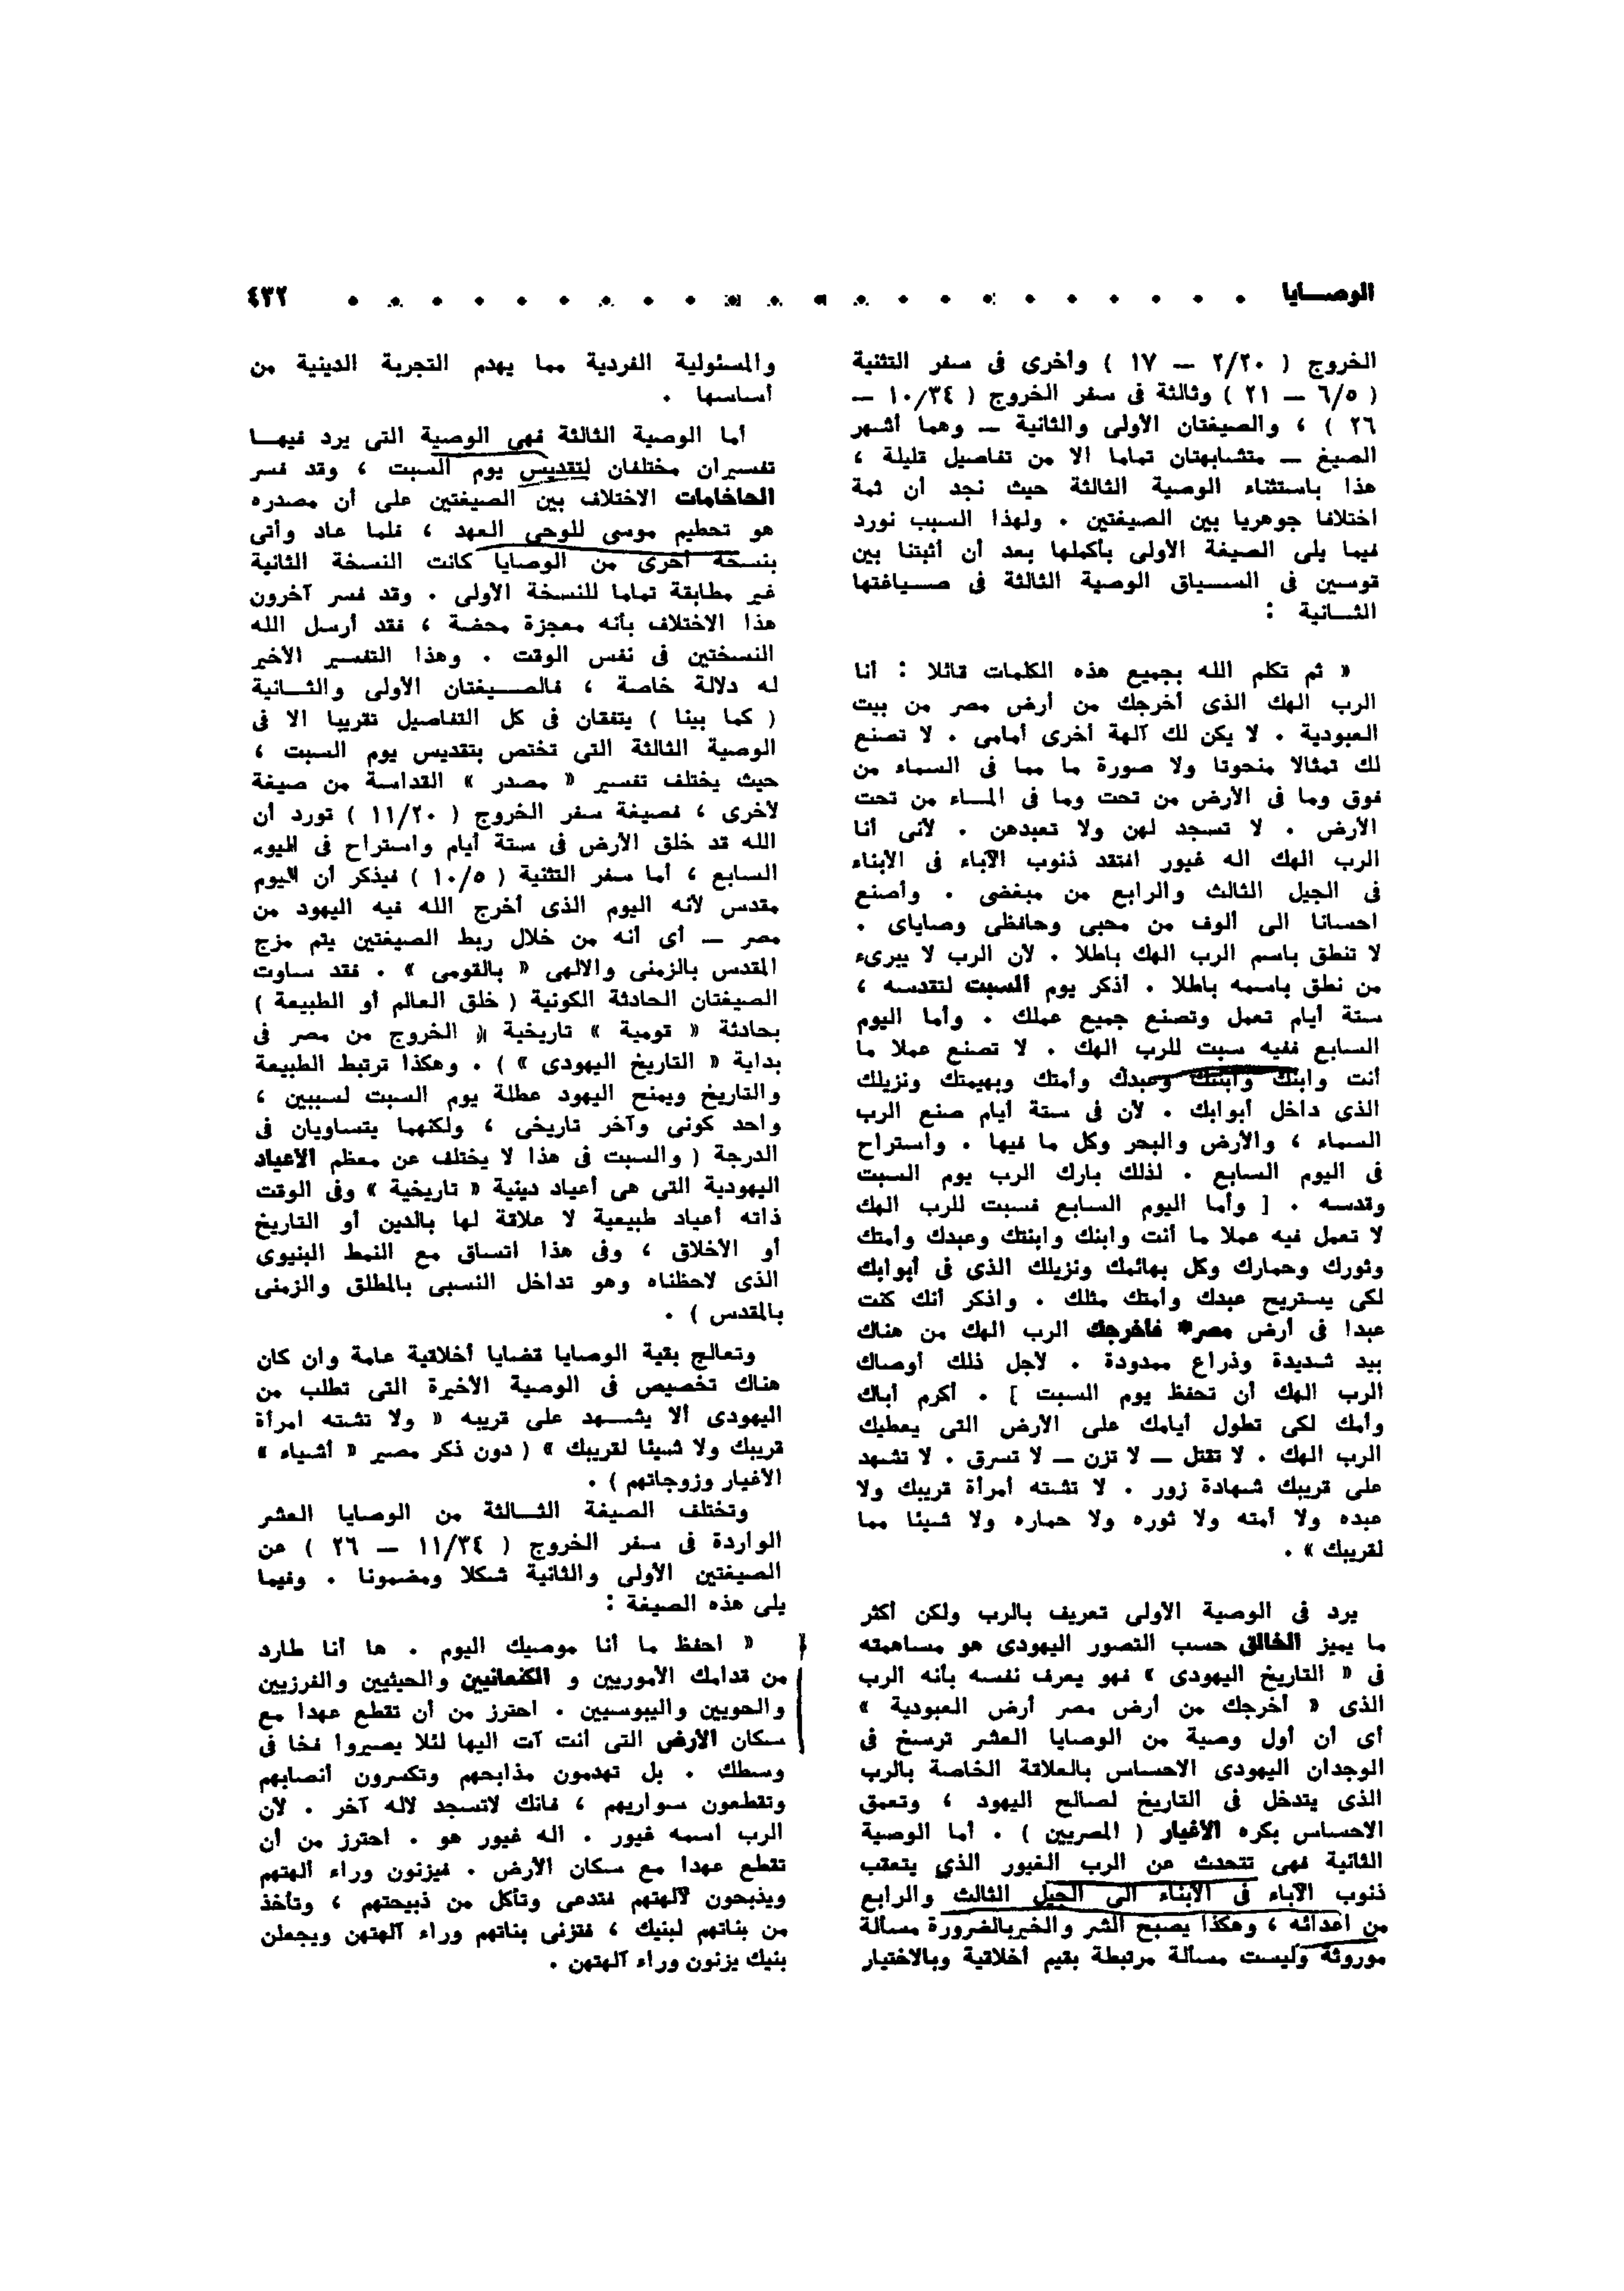 الوصـــايا ٤٣٢
الخروج ( ٢/٢٠ — ١٧ ) وأخرى فى سفر التثنية
( ٦/٥ — ٢١ ) وثالثة فى سفر الخروج ( ١٠/٣٤ —
٢٦ ) ، والصيغتان الأولى والثانية — وهما أشهر
الصيغ — متشابهتان تماما الا من تفاصيل قليلة ،
هذا باستثناء الوصية الثالثة حيث نجد أن ثمة
اختلافا جوهريا بين الصيغتين . ولهذا السبب نورد
فيما يلى الصيغة الأولى بأكملها بعد أن أثبتنا بين
قوسين فى الســـياق الوصية الثالثة فى صـــياغتها
الثـــانية :
« ثم تكلم الله بجميع هذه الكلمات قائلا : أنا
الرب الهك الذى أخرجك من أرض مصر من بيت
العبودية . لا يكن لك آلهة أخرى أمامى . لا تصنع
لك تمثالا منحوتا ولا صورة ما مما فى السماء من
فوق وما فى الأرض من تحت وما فى المـــاء من تحت
الأرض . لا تسجد لهن ولا تعبدهن . لأنى أنا
الرب الهك اله غيور افتقد ذنوب الآباء فى الأبناء
فى الجيل الثالث والرابع من مبغضى . وأصنع
احسانا الى ألوف من محبى وحافظى وصاياى .
لا تنطق باسم الرب الهك باطلا . لأن الرب لا يبرىء
من نطق باسمه باطلا . أذكر يوم السبت لتقدسه ،
ستة أيام تعمل وتصنع جميع عملك . وأما اليوم
السابع ففيه سبت للرب الهك . لا تصنع عملا ما
أنت وابنك وابنتك وعبدك وأمتك وبهيمتك ونزيلك
الذى داخل أبوابك . لأن فى ستة أيام صنع الرب
السماء ، والأرض والبحر وكل ما فيها . واستراح
فى اليوم السابع . لذلك بارك الرب يوم السبت
وقدسه . [ وأما اليوم السابع فسبت للرب الهك
لا تعمل فيه عملا ما أنت وابنك وابنتك وعبدك وأمتك
وثورك وحمارك وكل بهائمك ونزيلك الذى فى أبوابك
لكى يستريح عبدك وأمتك مثلك . واذكر أنك كنت
عبدا فى أرض مصر* فأخرجك الرب الهك من هناك
بيد شديدة وذراع ممدودة . لأجل ذلك أوصاك
الرب الهك أن تحفظ يوم السبت ] . أكرم أباك
وأمك لكى تطول أيامك على الأرض التى يعطيك
الرب الهك . لا تقتل — لا تزن — لا تسرق . لا تشهد
على قريبك شهادة زور . لا تشته أمرأة قريبك ولا
عبده ولا أمته ولا ثوره ولا حماره ولا شيئا مما
لقريبك » .
يرد فى الوصية الأولى تعريف بالرب ولكن أكثر
ما يميز الخالق حسب التصور اليهودى هو مساهمته
فى « التاريخ اليهودى » فهو يعرف نفسه بأنه الرب
الذى « أخرجك من أرض مصر أرض العبودية »
أى أن أول وصية من الوصايا العشر ترسخ فى
الوجدان اليهودى الاحساس بالعلاقة الخاصة بالرب
الذى يتدخل فى التاريخ لصالح اليهود ، وتعمق
الاحساس بكره الأغيار ( المصريين ) . أما الوصية
الثانية فهى تتحدث عن الرب الغيور الذي يتعقب
ذنوب الآباء فى الأبناء الى الجيل الثالث والرابع
من أعدائه ، وهكذا يصبح الشر والخيربالضرورة مسألة
موروثة وليست مسألة مرتبطة بقيم أخلاقية وبالاختيار
والمسئولية الفردية مما يهدم التجربة الدينية من
أساسها .
أما الوصية الثالثة فهى الوصية التى يرد فيهـــا
تفسيران مختلفان لتقديس يوم السبت ، وقد فسر
الحاخامات الاختلاف بين الصيغتين على أن مصدره
هو تحطيم موسى للوحى العهد ، فلما عاد وأتى
بنسخة أخرى من الوصايا كانت النسخة الثانية
غير مطابقة تماما للنسخة الأولى . وقد فسر آخرون
هذا الاختلاف بأنه معجزة محضة ، فقد أرسل الله
النسختين فى نفس الوقت . وهذا التفسير الأخير
له دلالة خاصة ، فالصـــيغتان الأولى والثـــانية
( كما بينا ) يتفقان فى كل التفاصيل تقريبا الا فى
الوصية الثالثة التى تختص بتقديس يوم السبت ،
حيث يختلف تفسير « مصدر » القداسة من صيغة
لأخرى ، فصيغة سفر الخروج ( ١١/٢٠ ) تورد أن
الله قد خلق الأرض فى ستة أيام واستراح فى اليوم
السابع ، أما سفر التثنية ( ١٠/٥ ) فيذكر أن اليوم
مقدس لأنه اليوم الذى أخرج الله فيه اليهود من
مصر — أى أنه من خلال ربط الصيغتين يتم مزج
المقدس بالزمنى والالهى « بالقومى » . فقد ساوت
الصيغتان الحادثة الكونية ( خلق العالم أو الطبيعة )
بحادثة « قومية » تاريخية ( الخروج من مصر فى
بداية « التاريخ اليهودى » ) . وهكذا ترتبط الطبيعة
والتاريخ ويمنح اليهود عطلة يوم السبت لسببين ،
واحد كونى وآخر تاريخى ، ولكنهما يتساويان فى
الدرجة ( والسبت فى هذا لا يختلف عن معظم الأعياد
اليهودية التى هى أعياد دينية « تاريخية » وفى الوقت
ذاته أعياد طبيعية لا علاقة لها بالدين أو التاريخ
أو الأخلاق ، وفى هذا اتساق مع النمط البنيوى
الذى لاحظناه وهو تداخل النسبى بالمطلق والزمنى
بالمقدس ) .
وتعالج بقية الوصايا قضايا أخلاقية عامة وان كان
هناك تخصيص فى الوصية الأخيرة التى تطلب من
اليهودى ألا يشـــهد على قريبه « ولا تشته امرأة
قريبك ولا شيئا لقريبك » ( دون ذكر مصير « أشياء »
الأغيار وزوجاتهم ) .
وتختلف الصيغة الثـــالثة من الوصايا العشر
الواردة فى سفر الخروج ( ١١/٣٤ — ٢٦ ) عن
الصيغتين الأولى والثانية شكلا ومضمونا . وفيما
يلى هذه الصيغة :
« احفظ ما أنا موصيك اليوم . ها أنا طارد
من قدامك الأموريين و الكنعانيين والحيثيين والفرزيين
والحويين واليبوسيين . احترز من أن تقطع عهدا مع
سكان الأرض التى أنت آت اليها لئلا يصيروا فخا فى
وسطك . بل تهدمون مذابحهم وتكسرون أنصابهم
وتقطعون سواريهم ، فانك لاتسجد لاله آخر . لأن
الرب اسمه غيور . اله غيور هو . احترز من أن
تقطع عهدا مع سكان الأرض . فيزنون وراء آلهتهم
ويذبحون لآلهتهم فتدعى وتأكل من ذبيحتهم ، وتأخذ
من بناتهم لبنيك ، فتزنى بناتهم وراء آلهتهن ويجعلن
بنيك يزنون وراء آلهتهن .